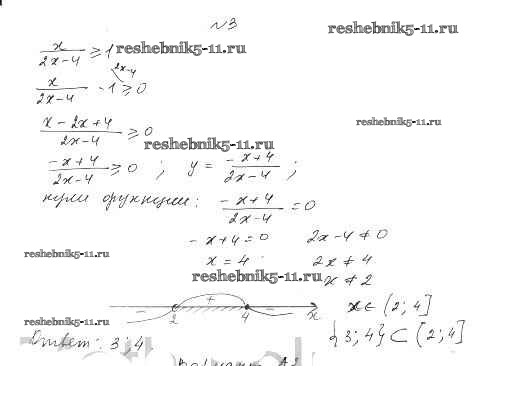 №3
x/(2x-4) ≥ 1
reshebnik5-11.ru
reshebnik5-11.ru
x/(2x-4) - 1 ≥ 0
2x-4
x-2x+4/(2x-4) ≥ 0
reshebnik5-11.ru
reshebnik5-11.ru
-x+4/(2x-4) ≥ 0 ; y = -x+4/(2x-4) ;
нули функции: -x+4/(2x-4) = 0
-x+4=0 2x-4≠0
reshebnik5-11.ru
x=4 2x≠4
reshebnik5-11.ru
x≠2
- + -
2 4 x
x∈(2;4]
reshebnik5-11.ru
{3;4}⊂(2;4]
Ответ: 3;4.